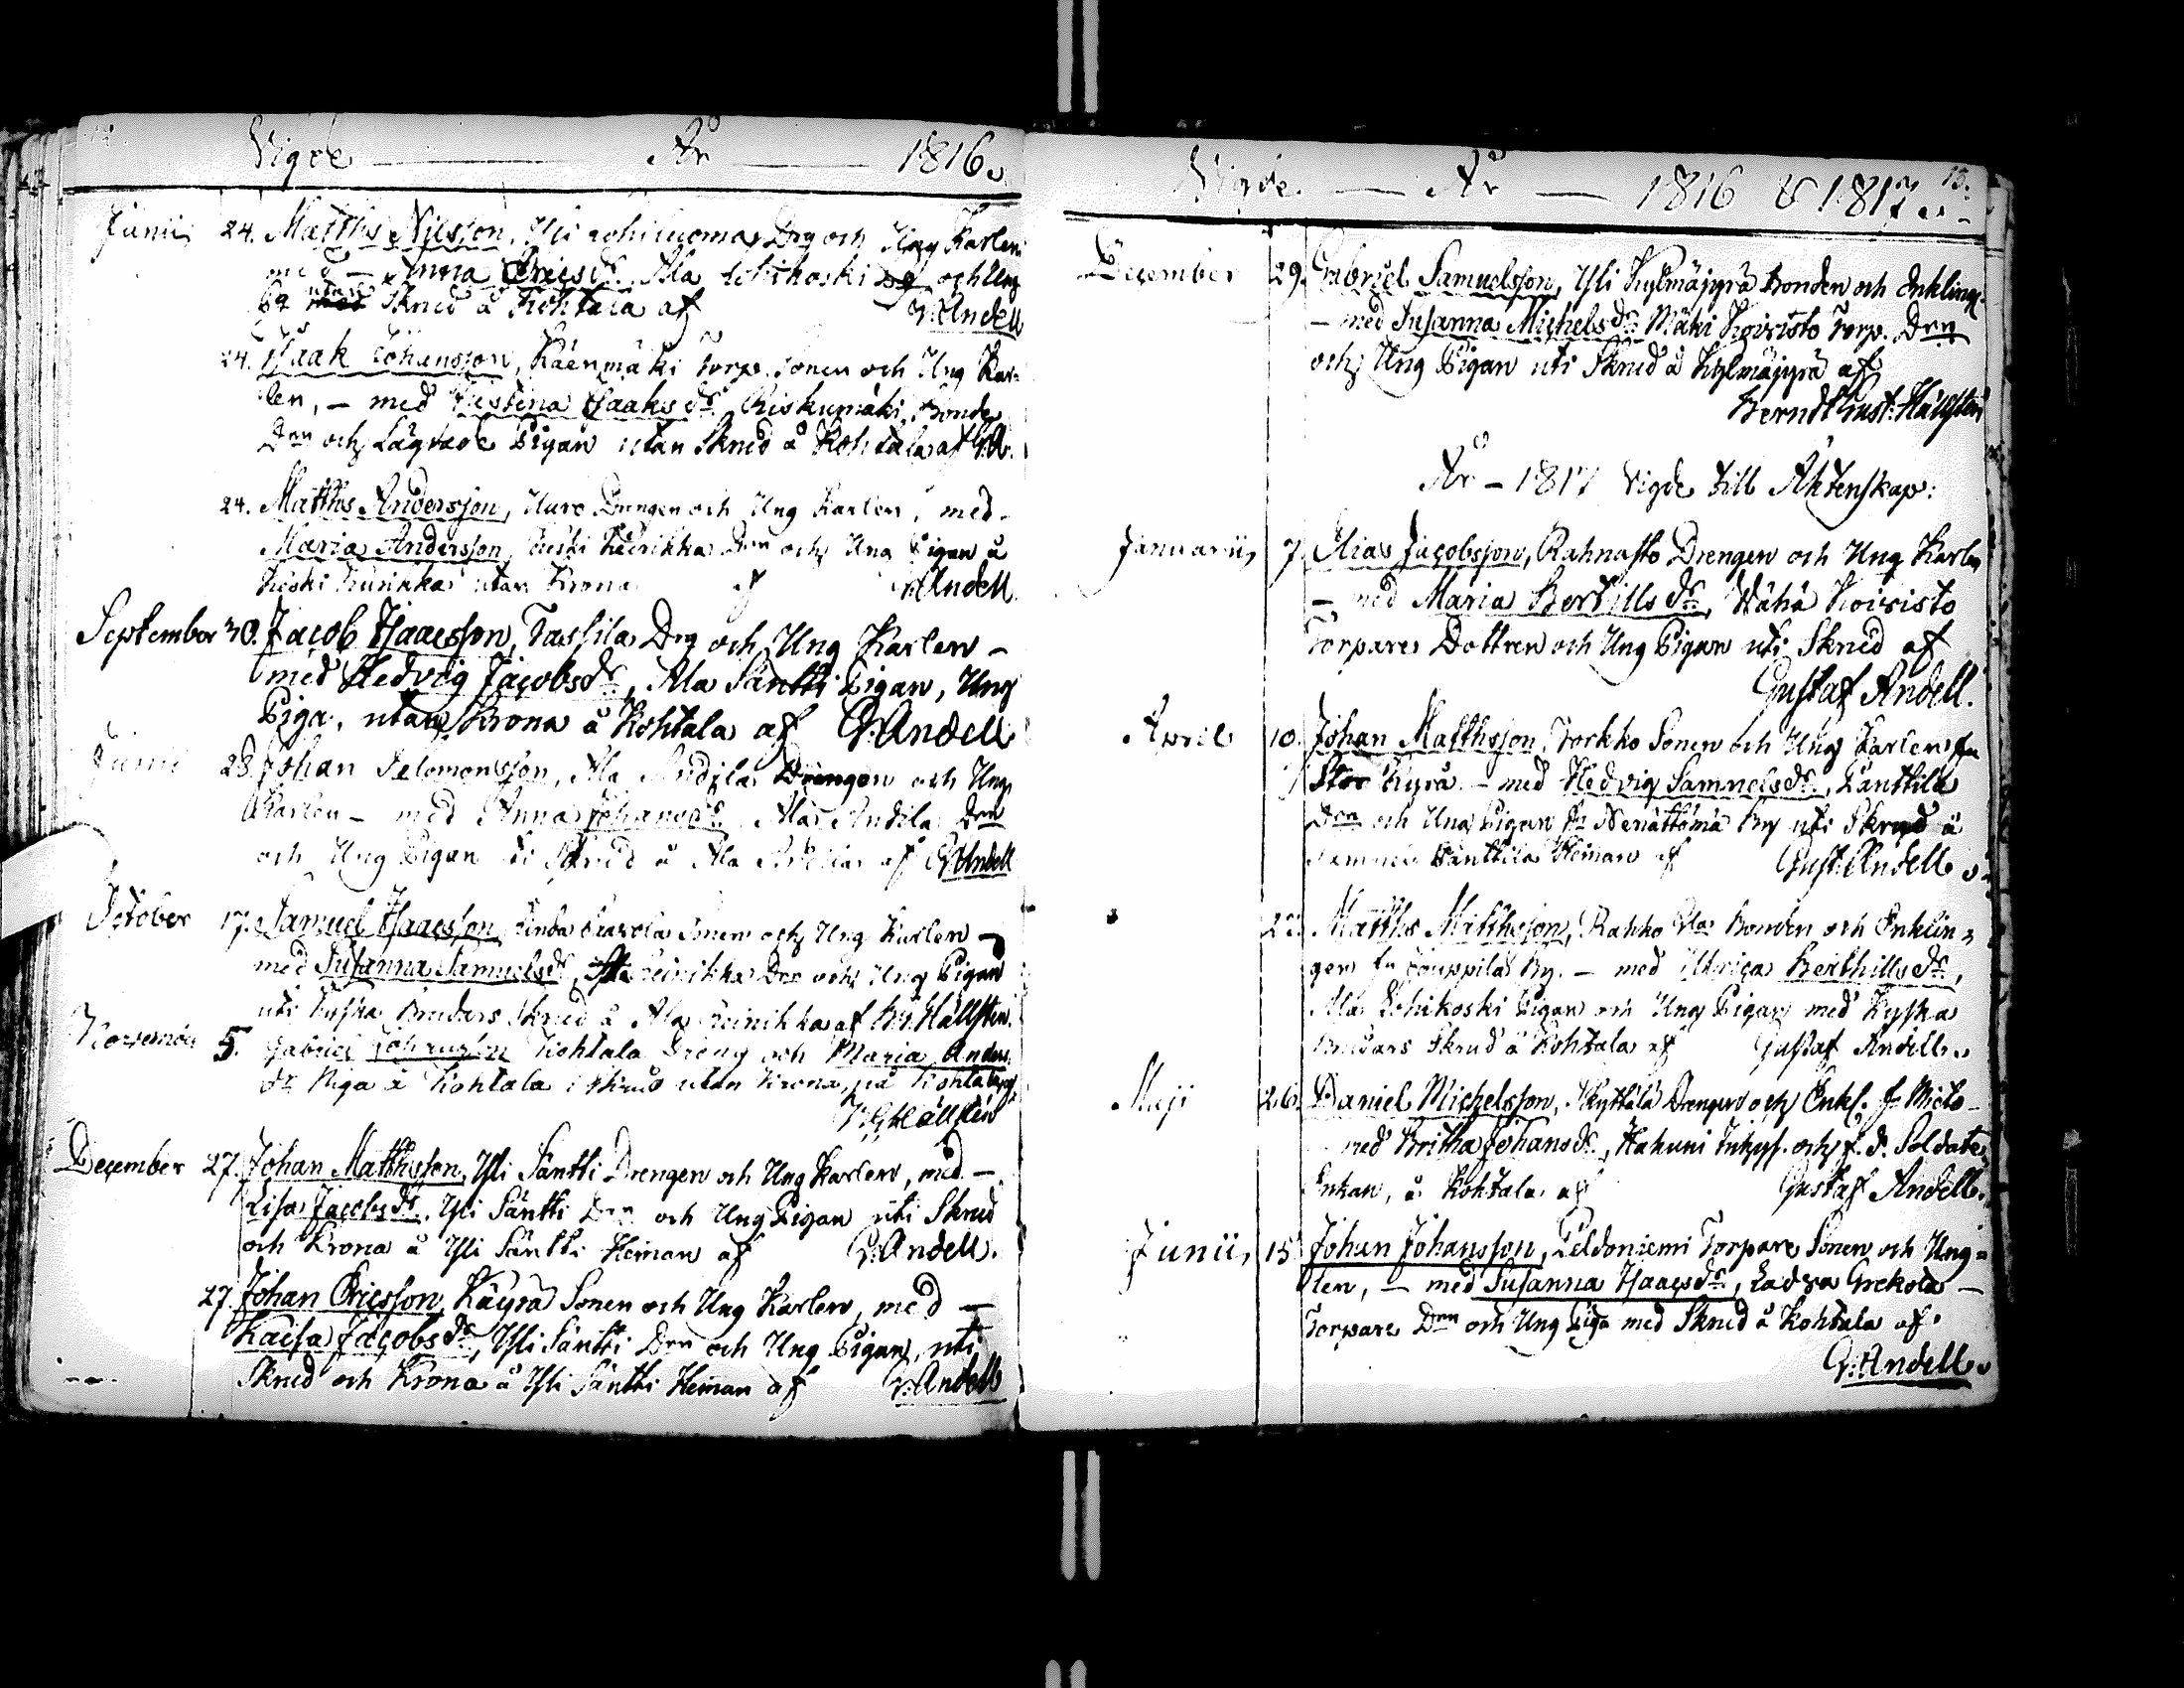 12.
Vigde — År — 1816.
Junii 24. Matths Nilsson, Yli Drg och Ung Karlen
med — Anna Ericsdr. Ala Lohikoski och Ung
utan
med Skrud å Kohtala af G. Andell
24. Isaak Johansson, Käenmäki Torp. Sonen och Ung Kar=
len, — med Isaaksdr Riskumäki Bonde
Drn och Lägrade Pigan utan Skrud å Kohtala af G.A.
24. Matths Andersson, Drengen och Ung Karlen, med
Maria Andersson, Drn och Ung Pigan å
utan Krona af G. Andell.
September 30. Jacob Isaacsson, Tassila Drg och Ung Karlen —
med Hedvig Jacobsdr, Ala Säntti Pigan, Ung
Piga, utan Krona å Kohtala af G: Andell
Junii 28. Johan Salomonsson, Ala Andila Drengen och Ung
Karlen — med Anna Johansdr. Ala Andila Drn
och Ung Pigan uti Skrud å Ala af G. Andell
October 17. Samuel Isaacsson, Sonen och Ung Karlen —
med Susanna Samuelsdr, Ala Reinikka Drn och Ung Pigan
uti Tyska Brudars Skrud å Ala Reinikka af B.G. Hällsten.
November 5. Gabriel Johansson Kohtala Dreng och Maria Anders
dr Piga å Kohtala i Skrud utan Krona, på Kohtala af
B.G. Hällsten
December 27. Johan Matthsson, Yli Säntti Drengen och Ung Karlen, med —
Lisa Jacobsdr. Yli Säntti Drn och Ung Pigan uti Skrud
och Krona å Yli Säntti Heman af G: Andell.
27. Johan Ericsson, Käyrä Sonen och Ung Karlen, med —
Kaisa Jacobsdr, Yli Säntti Drn och Ung Pigan, uti
Skrud och Krona å Yli Säntti Heman af G: Andell
13.
Vigde. — År — 1816 & 1817
December 29. Gabriel Samuelsson, Yli Kylmäjyrä Bonden och Enkling.
— med Susanna Michelsdr Mäki Koivisto Torp. Drn
och Ung Pigan uti Skrud å Kylmäjyrä af
Berndt Gust. Hällsten
År — 1817 Vigde till Äktenskap:
Januarii 7. Elias Jacobsson, Rahnasto Drengen och Ung Karlen
— med Maria Bertillsdr, Wähä Koivisto
Torpare Dottren och Ung Pigan uti Skrud af
Gustaf Andell.
April 10. Johan Matthsson, Torkko Sonen och Ung Karlen fr
Stor Kyrå — med Hedvig Samuelsdr, Länttilä
Drn och Ung Pigan fr Nenättömä By uti Skrud å
Länttilä Heman af Gust: Andell
22. Matths Matthsson, Rahko Bonden och Enklin=
gen fr Jouppila By. — med Ulrica Berthillsdr,
Ala Lohikoski Pigan och Ung Pigan med Tyska
Brudars Skrud å Kohtala af Gustaf Andell.
Maji 26. Daniel Michelsson, Kyttälä Drengen och Enkl. fr Mieto —
med Britha Johansdr, Hakuni Inhys. och f. d. Soldate
Enkan, å Kohtala af Gustaf Andell.
Junii, 15. Johan Johansson, Peldoniemi Torpare Sonen och Ung=
len, — med Susanna Isaacsdr, Ladva Grekola —
Torpare Drn och Ung Piga med Skrud å Kohtala af.
G: Andell